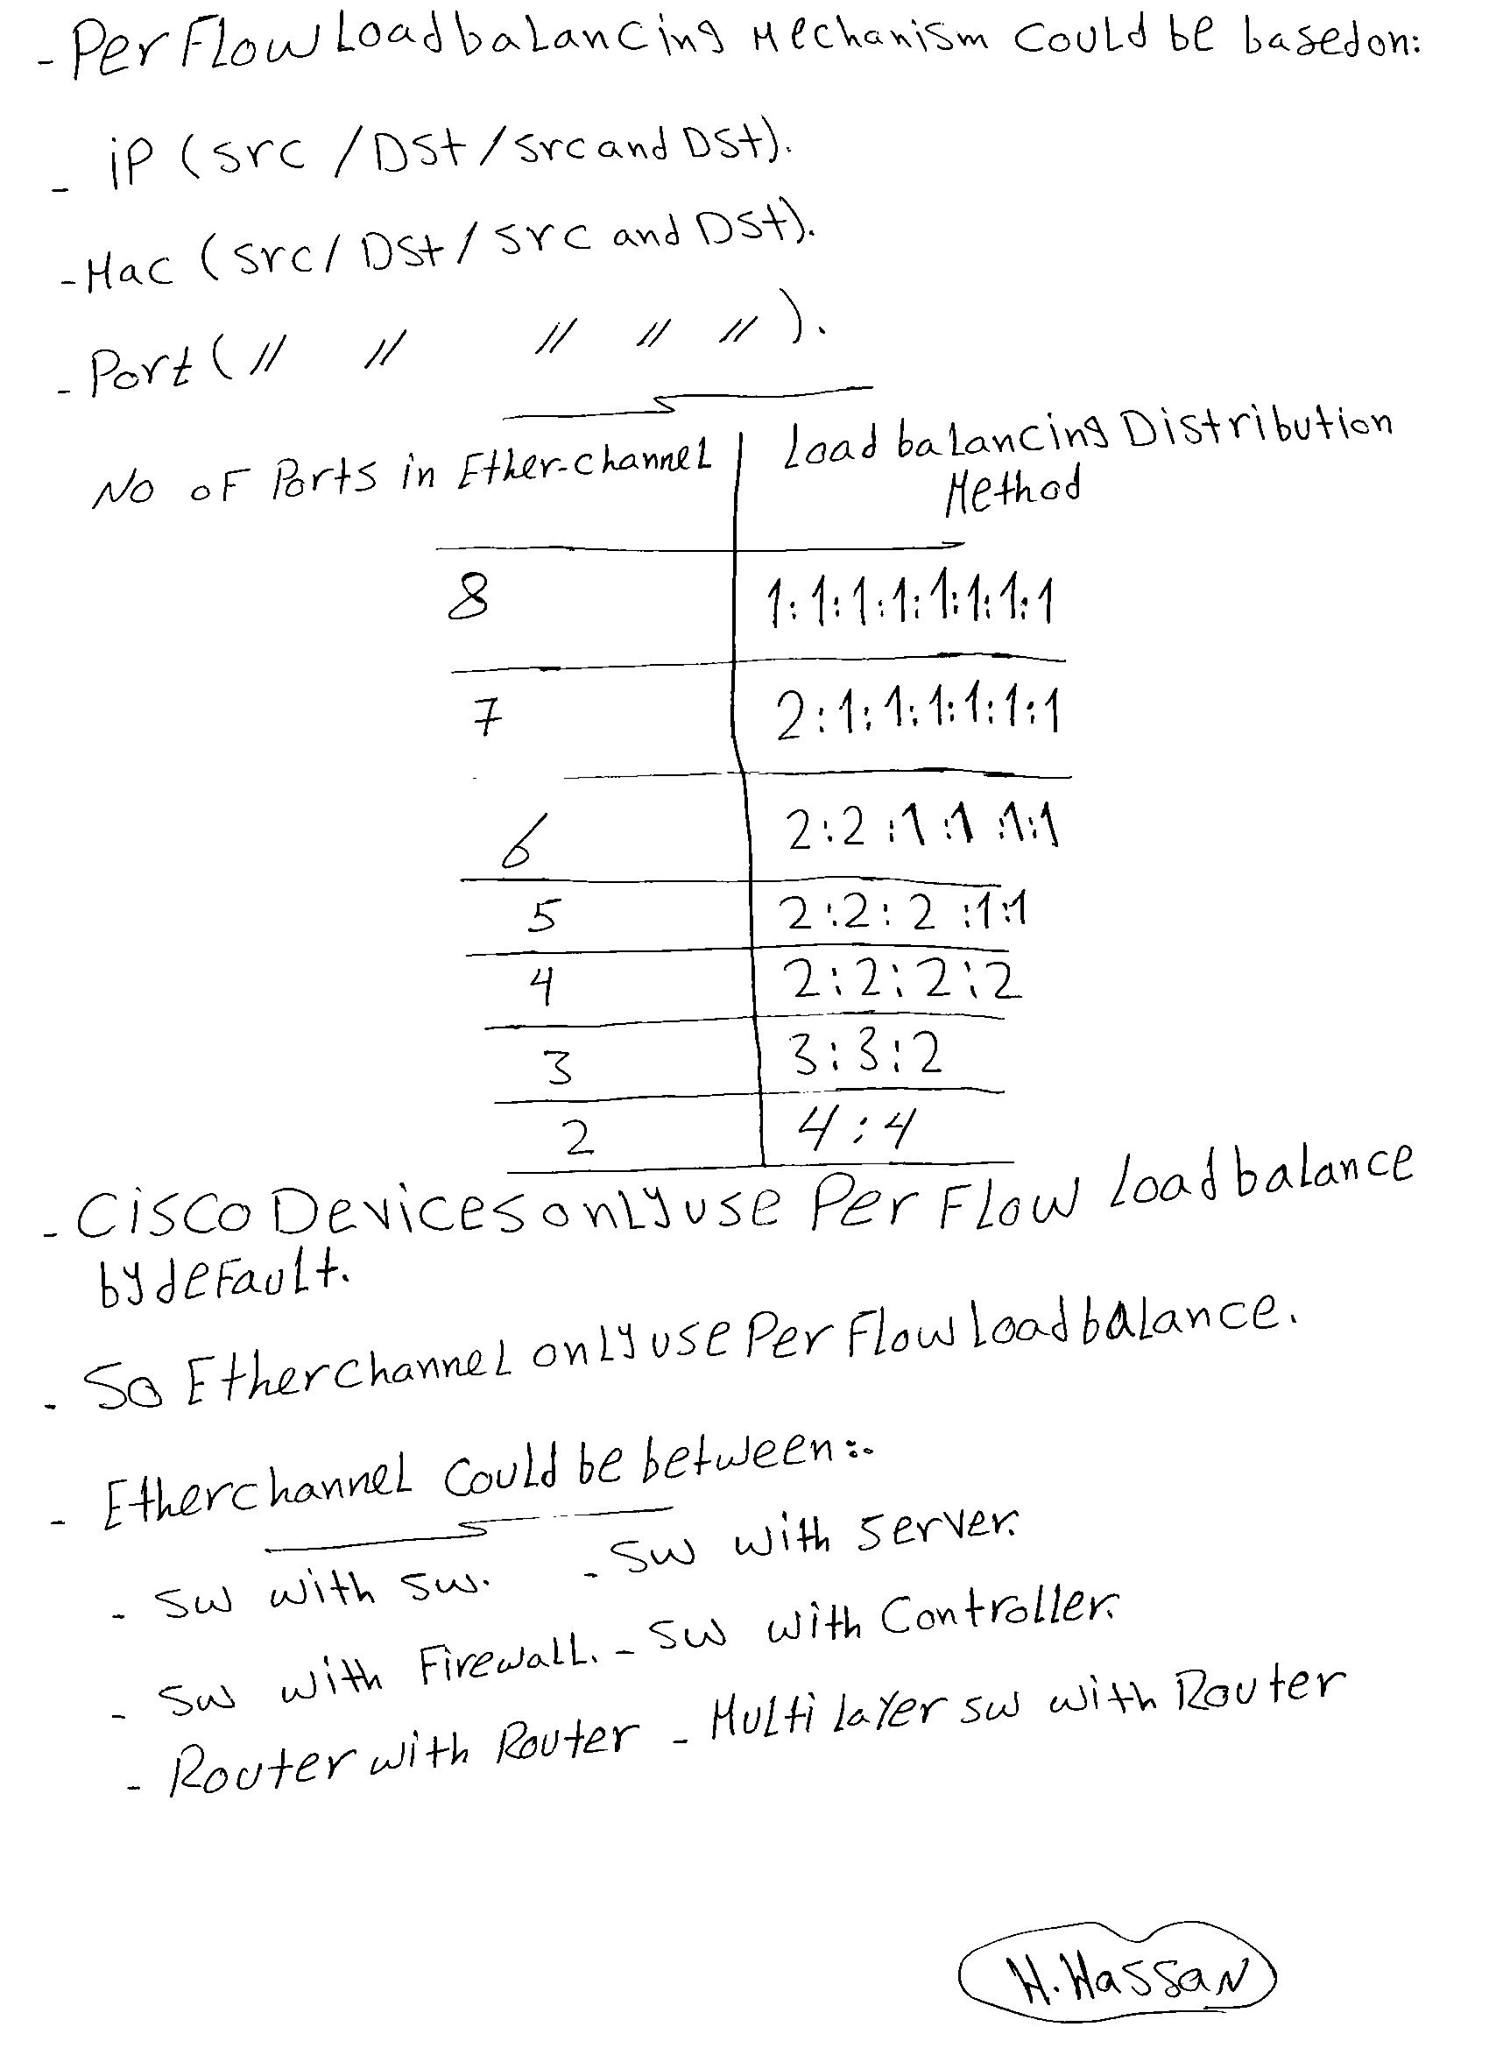 - Per Flow Load balancing Mechanism Could be based on:
- iP (src / Dst / src and Dst).
- Mac (src / Dst / src and Dst).
- Port ( // // // // // ).
No of Ports in Ether-channel | Load balancing Distribution
Method
8 1:1:1:1:1:1:1:1
7 2:1:1:1:1:1:1
6 2:2:1:1:1:1
5 2:2:2:1:1
4 2:2:2:2
3 3:3:2
2 4:4
- Cisco Devices only use Per Flow Load balance
by default.
- So Etherchannel only use Per Flow Load balance.
- Etherchannel Could be between:.
- SW with SW. - SW with Server.
- SW with Firewall. - SW with Controller.
- Router with Router - Multi layer SW with Router
H.Hassan